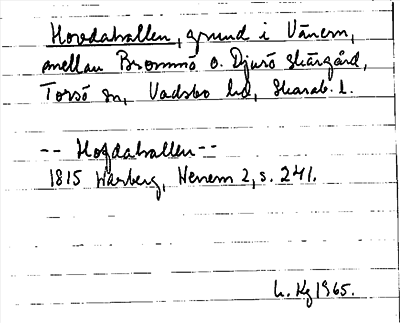 Hovdahallen, grund i Vänern,
mellan Brommö o. Djurö skärgård,
Torsö sn, Vadsbo hd, Skarab. l.
-- Hofdahallen --
1815 Warberg, Wenern 2, s. 241.
1965.